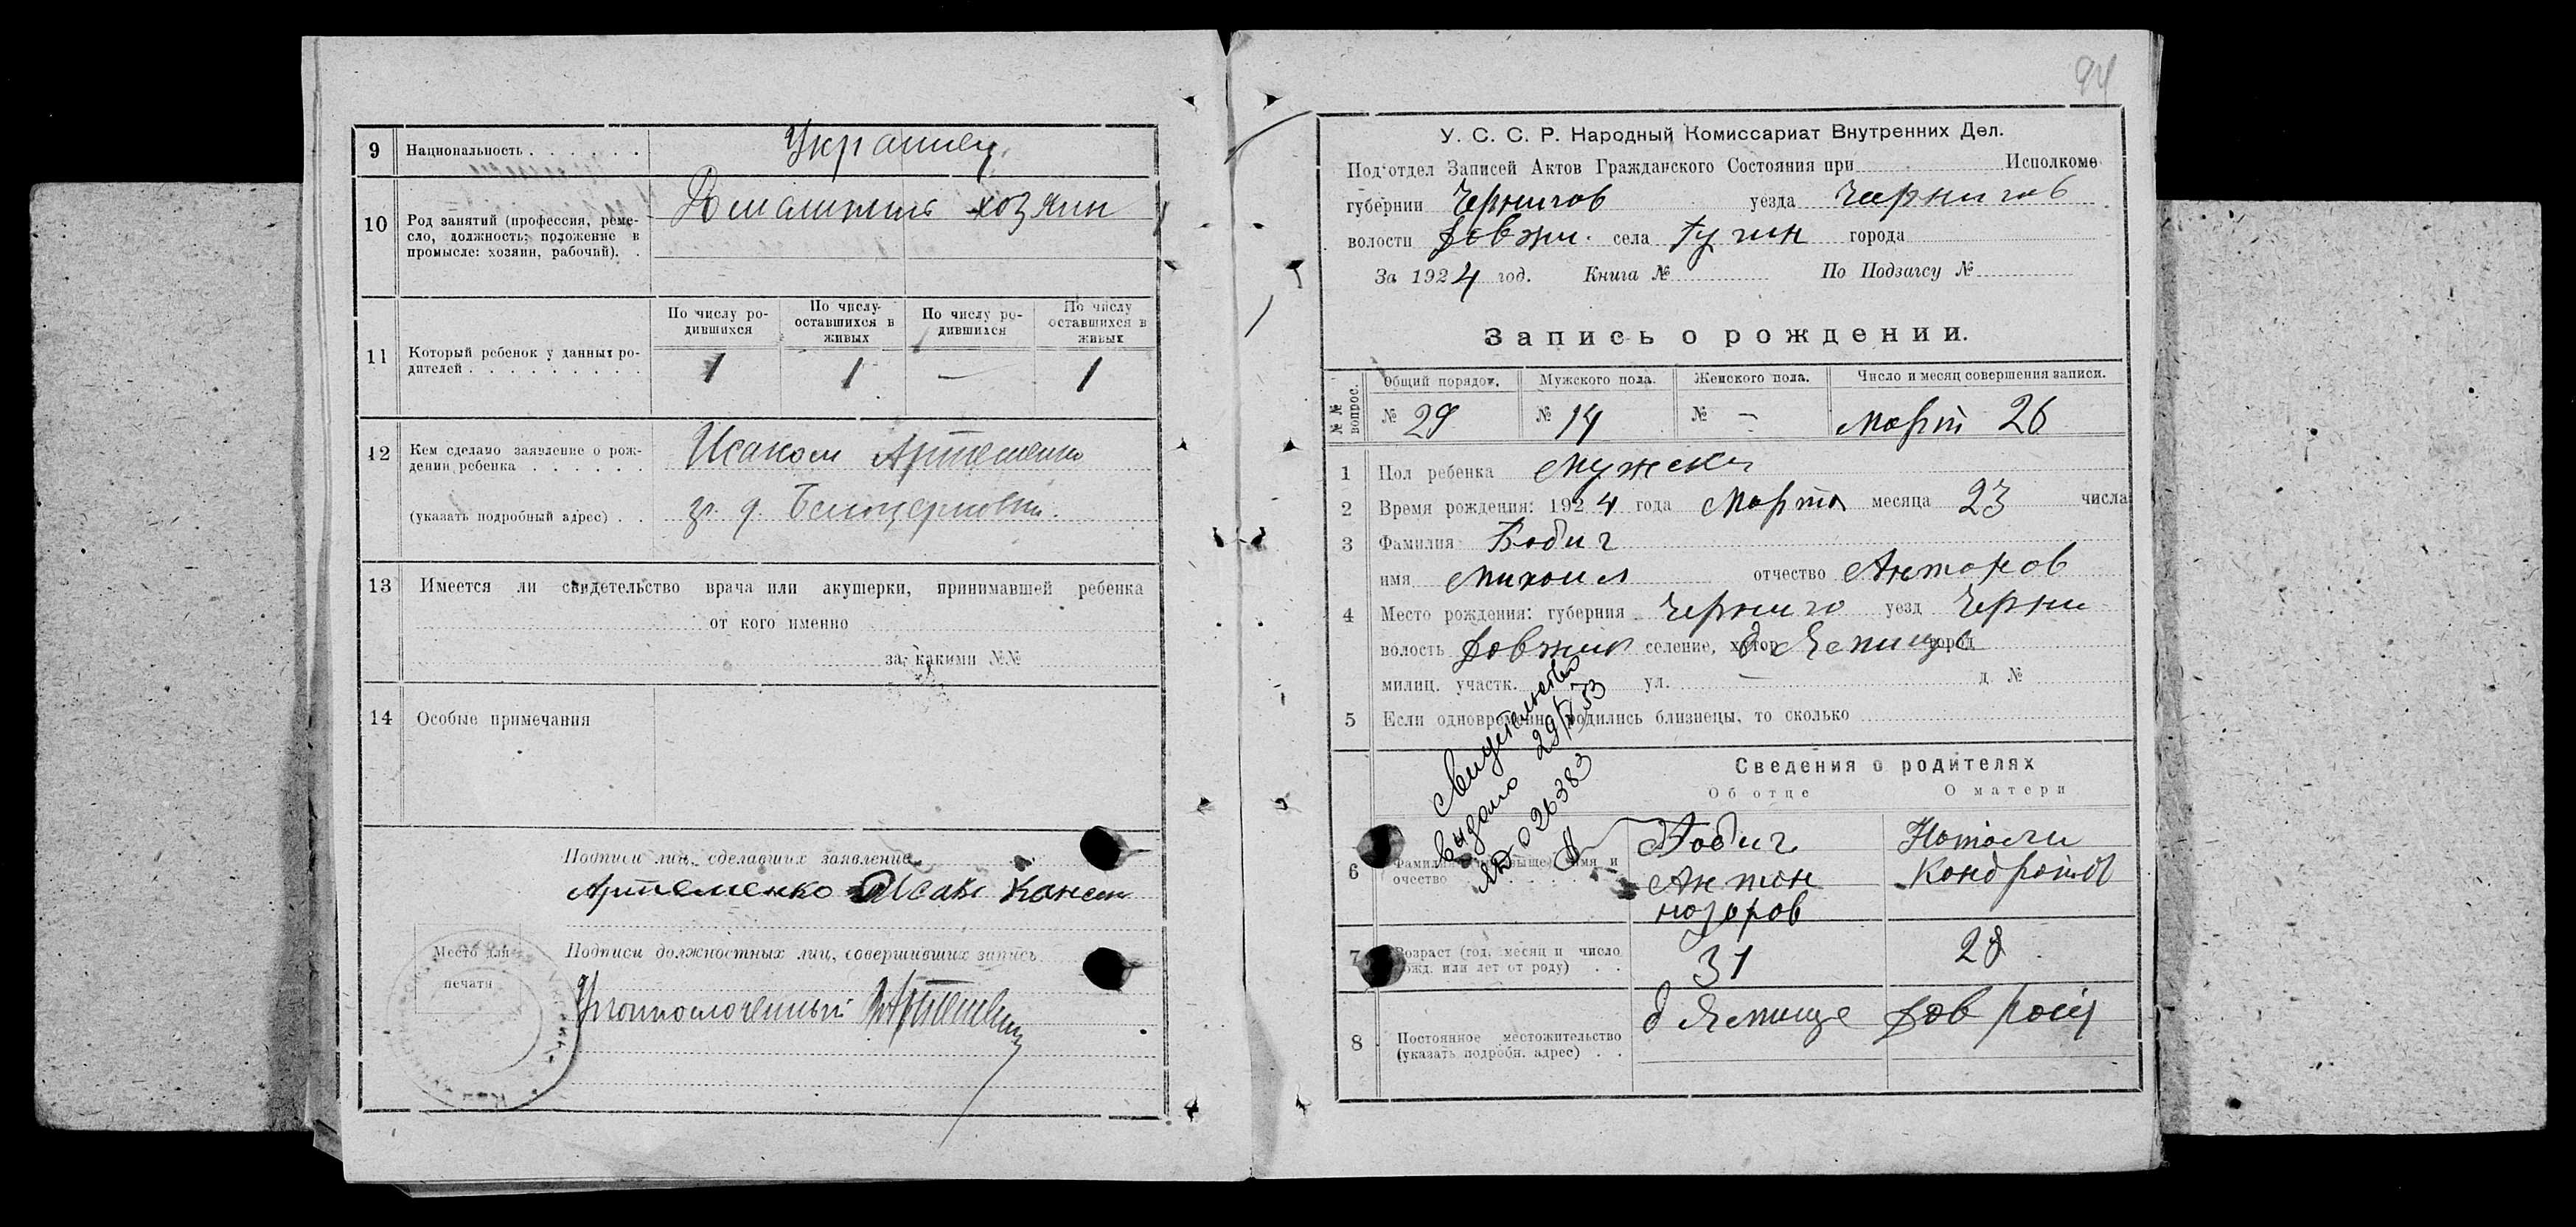 9 Национальность . . . . . . Украинец
10 Род занятий (профессия, реме-
сло, должность; положение в
промысле: хозяин, рабочий). .
хозяин
11 Который ребенок у данных ро-
дителей . . . . . . . . .
По числу ро-
дившихся
По числу
оставшихся в
живых
По числу ро-
дившихся
По числу
оставшихся в
живых
1 1 — 1
12 Кем сделано заявление о рож-
дении ребенка . . . . . . Исаком Артеменко
(указать подробный адрес) . .
13 Имеется ли свидетельство врача или акушерки, принимавшей ребенка
от кого именно
за какими №№
14 Особые примечания
Подписи лиц, сделавших заявление
Артеменко Исак
Место для
печати
Подписи должностных лиц, совершивших запись
Уполномоченный
94
У. С. С. Р. Народный Комиссариат Внутренних Дел.
Под'отдел Записей Актов Гражданского Состояния при Исполкоме
губернии Чернигов уезда Чернигов
волости села города
За 1924 год. Книга № По Подзагсу №
Запись о рождении.
№№ вопрос.
Общий порядок. Мужского пола. Женского пола. Число и месяц совершения записи.
№ 29 № 14 № – Март 26
1 Пол ребенка мужеск
2 Время рождения: 1924 года Марта месяца 23 числа
3 Фамилия Бобич
имя Михоил отчество Антонов
4 Место рождения: губерния Черниго уезд Черни
волость селение, хутор город
милиц. участк. ул. — д №
5 Если одновременно родились близнецы, то сколько
Свидетельство
выдано 29/V 53
026383
Сведения о родителях
Об отце О матери
6 Фамилия имя и
очество
Бобич
Антон
Нозоров
Нотоли
Кондротов
7 Возраст (год, месяц и число
рожд. или лет от роду) . . 31 28
8 Постоянное местожительство
(указать подробн. адрес) . .